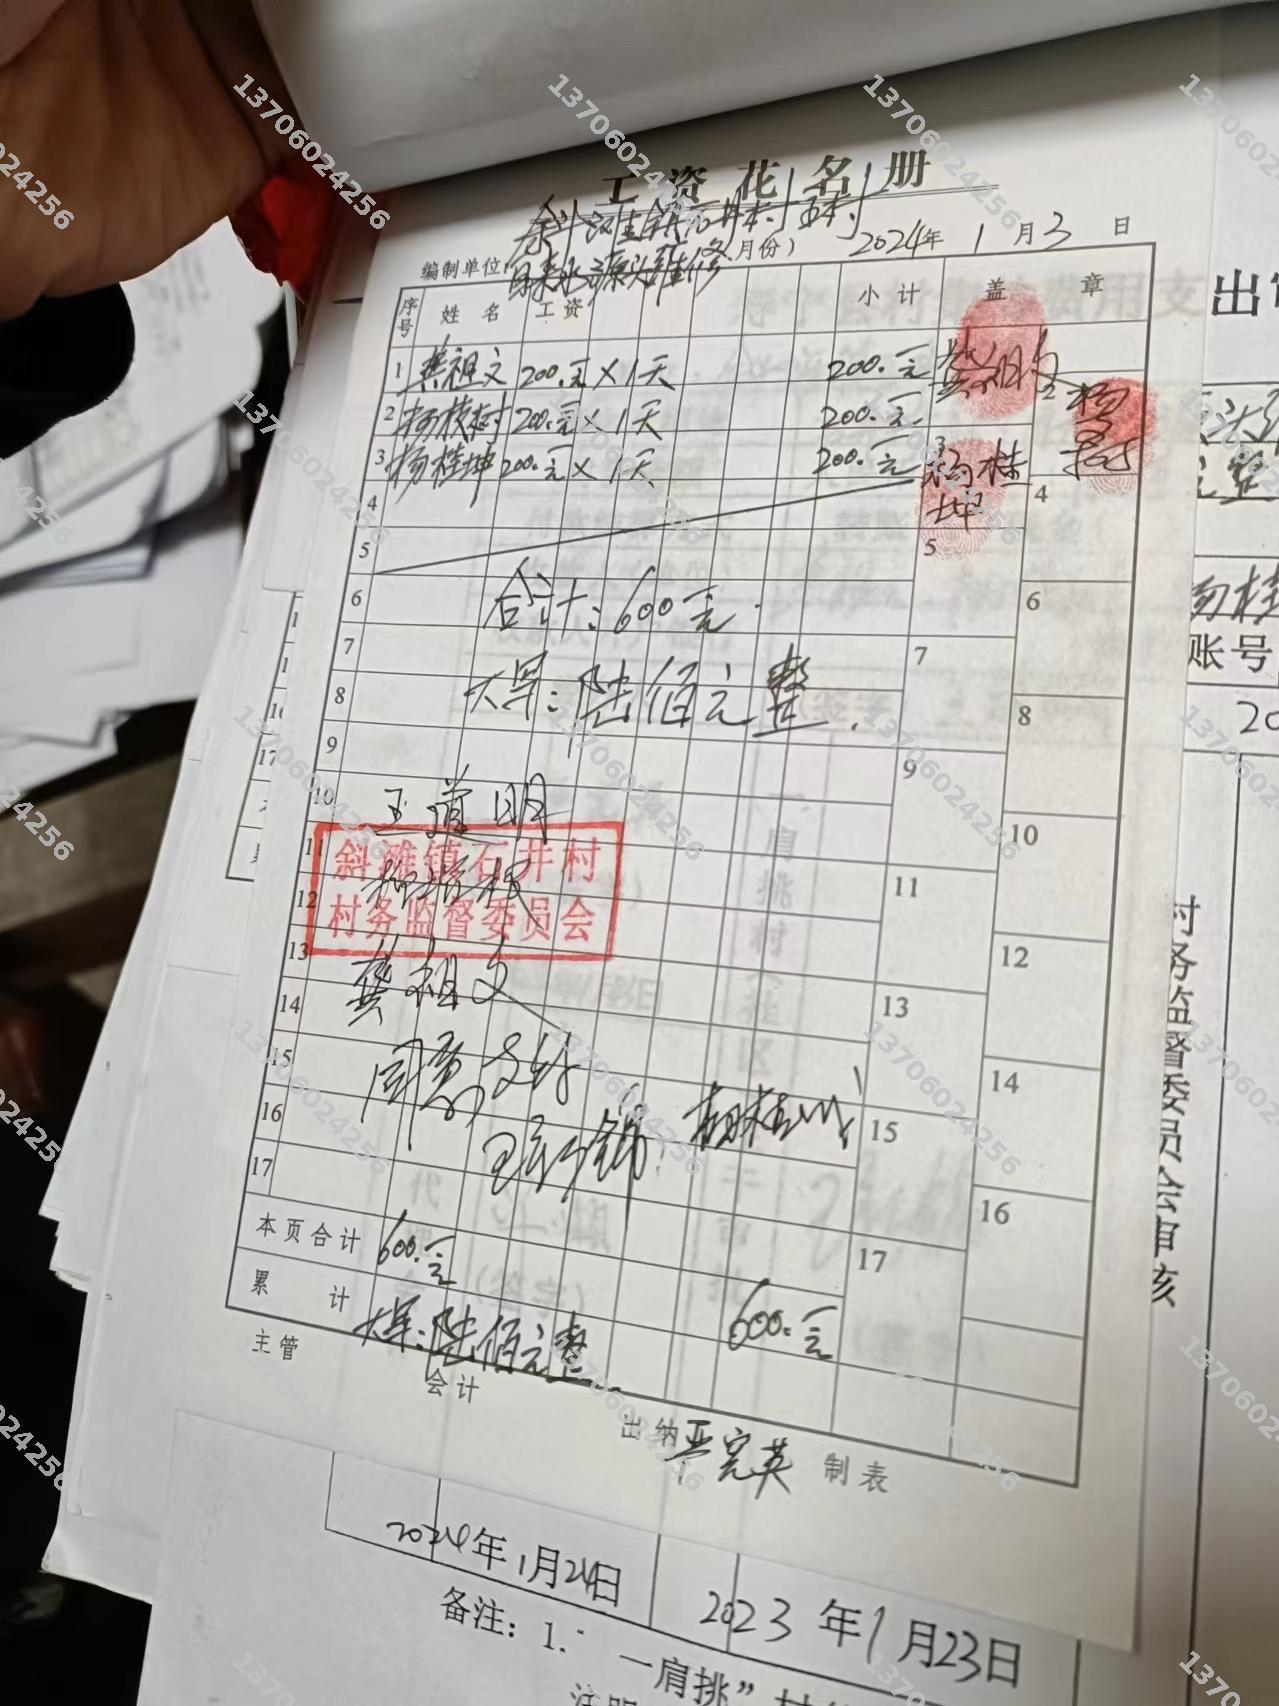 工资花名册
编制单位:
斜滩镇石井村本村
自来水源头维修
月份)
2024年 1月3日
序号 姓名 工资 小计 盖章
1 龚祖文 200.元×1天 200.元
2 杨枝树 200.元×1天 200.元
3 杨桂坤 200.元×1天 200.元 杨桂坤
4
5
6
合计:600元.
7
大写:陆佰元整.
8
9
10
王道明
11
斜滩镇石井村
12
村务监督委员会
13
龚祖文
14
15
同意支付
16
17
本页合计 600.元
累计 600.元
大写:陆佰元整
主管 会计 出纳 制表
2024年1月24日 2023年1月23日
备注:1.“一肩挑”村
注明
账号
村务监督委员会审核
13706024256